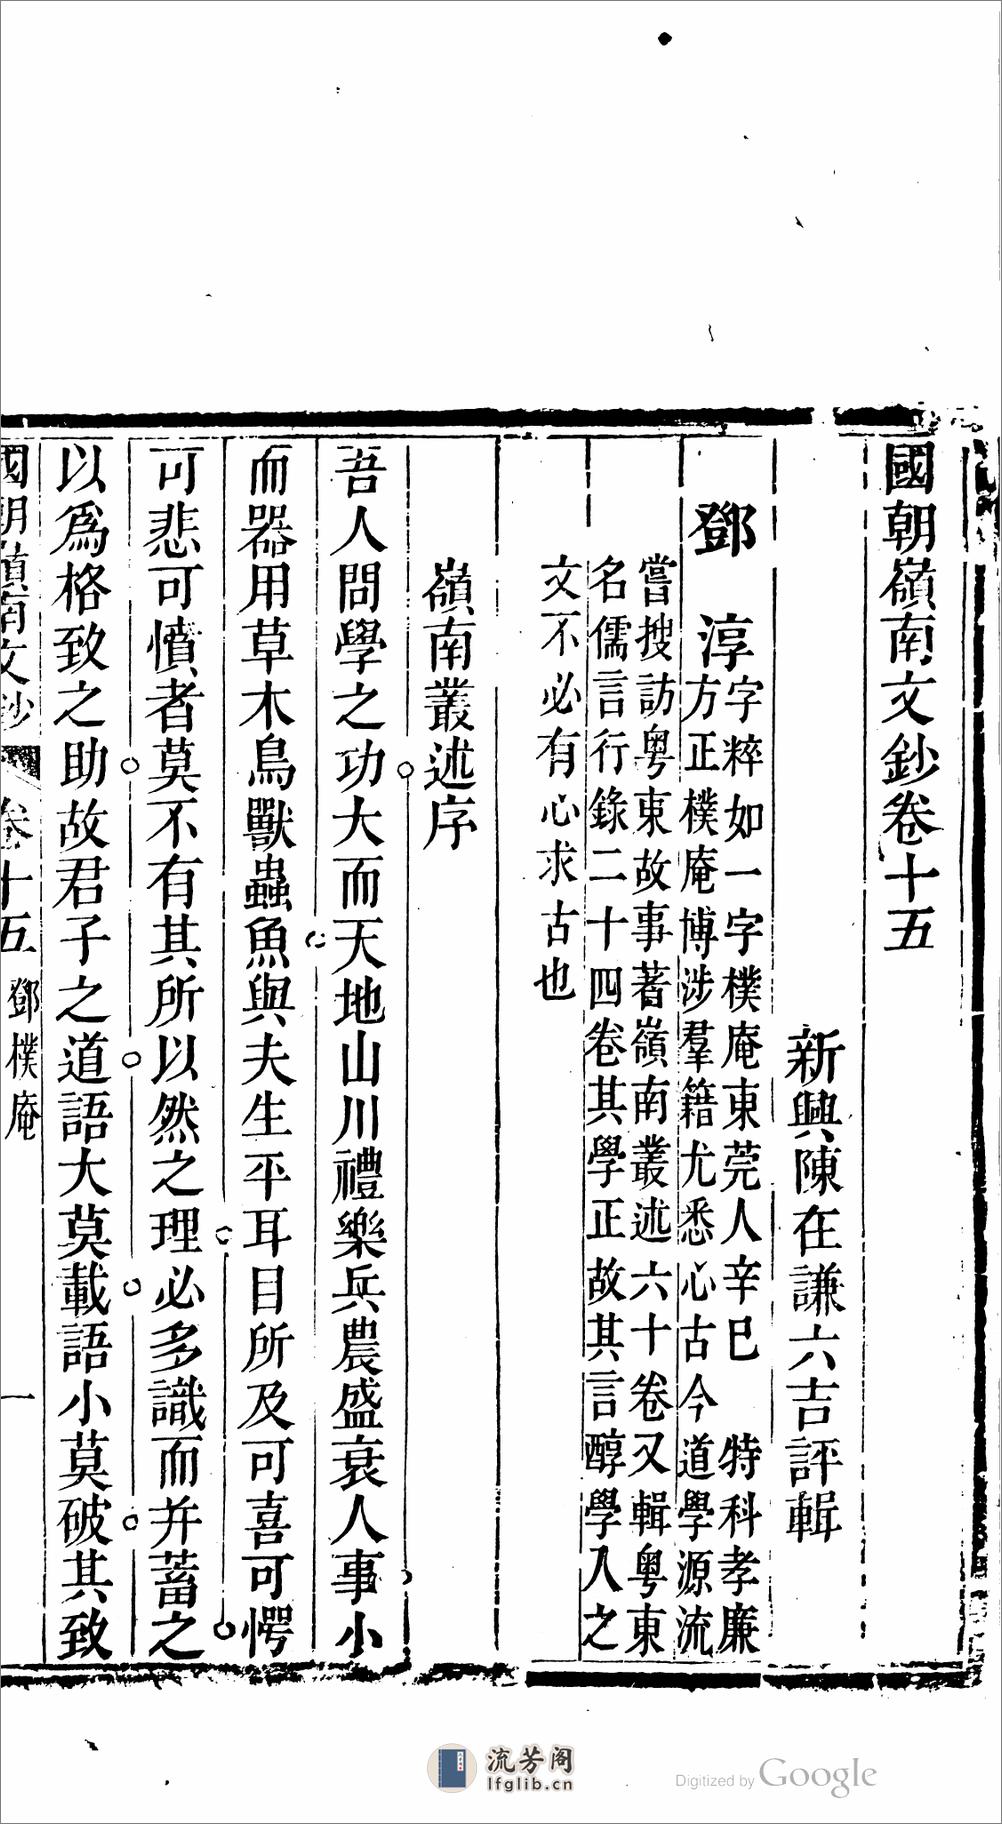 國朝嶺南文鈔卷十五
新興陳在謙六吉評輯
鄧淳字粹如一字樸庵東莞人辛巳 特科孝廉
方正樸庵博涉羣籍尤悉心古今道學源流
嘗搜訪粵東故事著嶺南叢述六十卷又輯粵東
名儒言行錄二十四卷其學正故其言醇學人之
文不必有心求古也
嶺南叢述序
吾人問學之功大而天地山川禮樂兵農盛衰人事小
而器用草木鳥獸蟲魚與夫生平耳目所及可喜可愕
可悲可憤者莫不有其所以然之理必多識而并蓄之
以爲格致之助故君子之道語大莫載語小莫破其致
國朝嶺南文鈔 卷十五 鄧樸庵 一
流芳阁
lfglib.cn
Digitized by Google